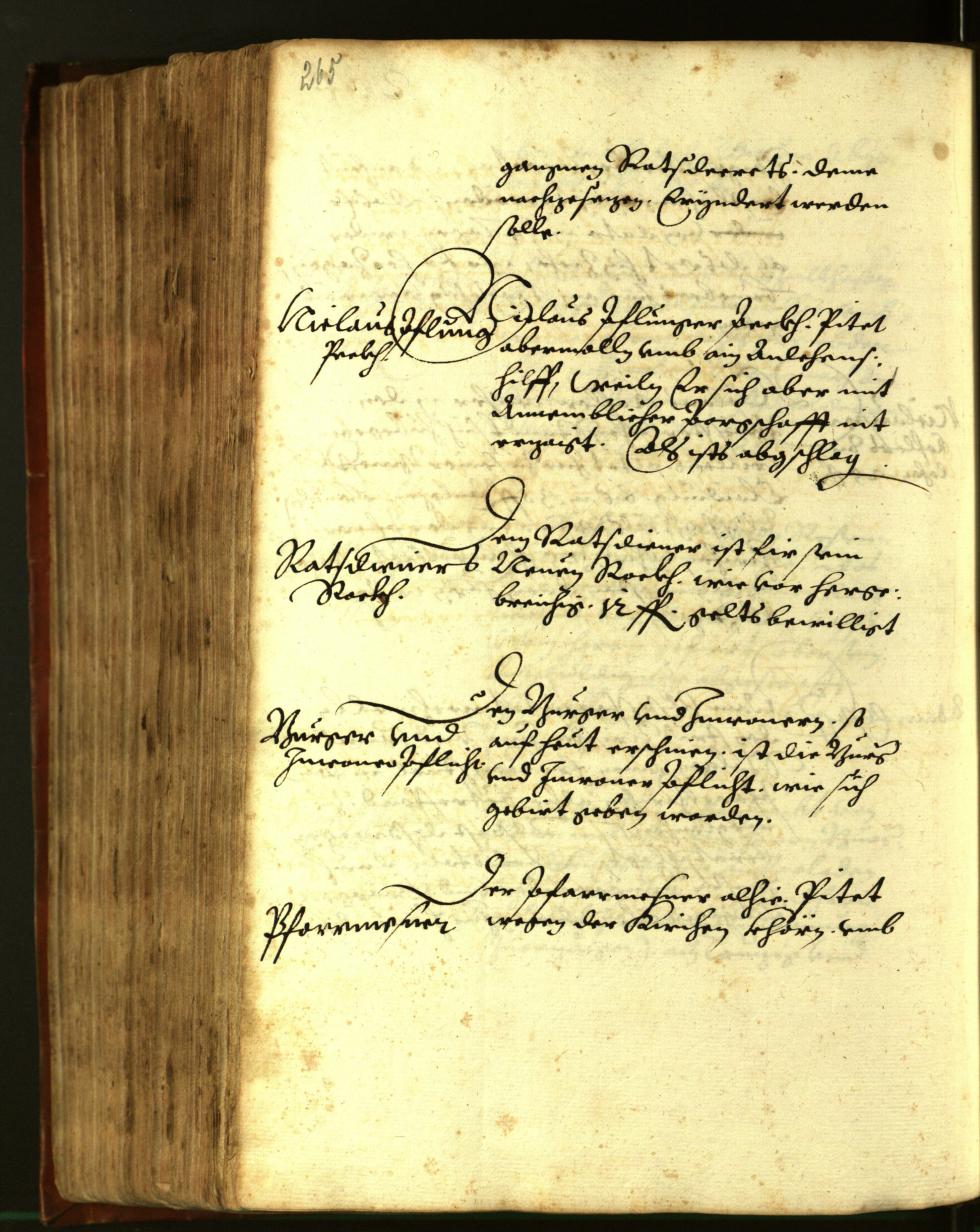 265
gangnen Ratsdecrets. deme
nachzesezen. Eryndert werden
solle.
Niclaus Pflung
Peckh.
Niclaus Pflunger Peckh. Pitet
abermalln umb ain Anlehens:
hilff, Weiln Er sich aber mit
Annemblicher Porgschafft nit
erzaigt. Als ists abgschlag
Ratsdieners
Rockh.
Dem Ratsdiener ist fir sein
Neuen Rockh. wie vor herge:
breichig. 12 fl. gelts bewilligt
Burger und
Inwoner Pflicht
Den Burger und Inwonern. so
auf heut erschinen. ist die Burg
und Inwoner Pflicht. wie sich
gebirt geben worden.
Pfarrmesner
Der Pfarrmesner alhie. Pitet
wegen der Kirchen umb